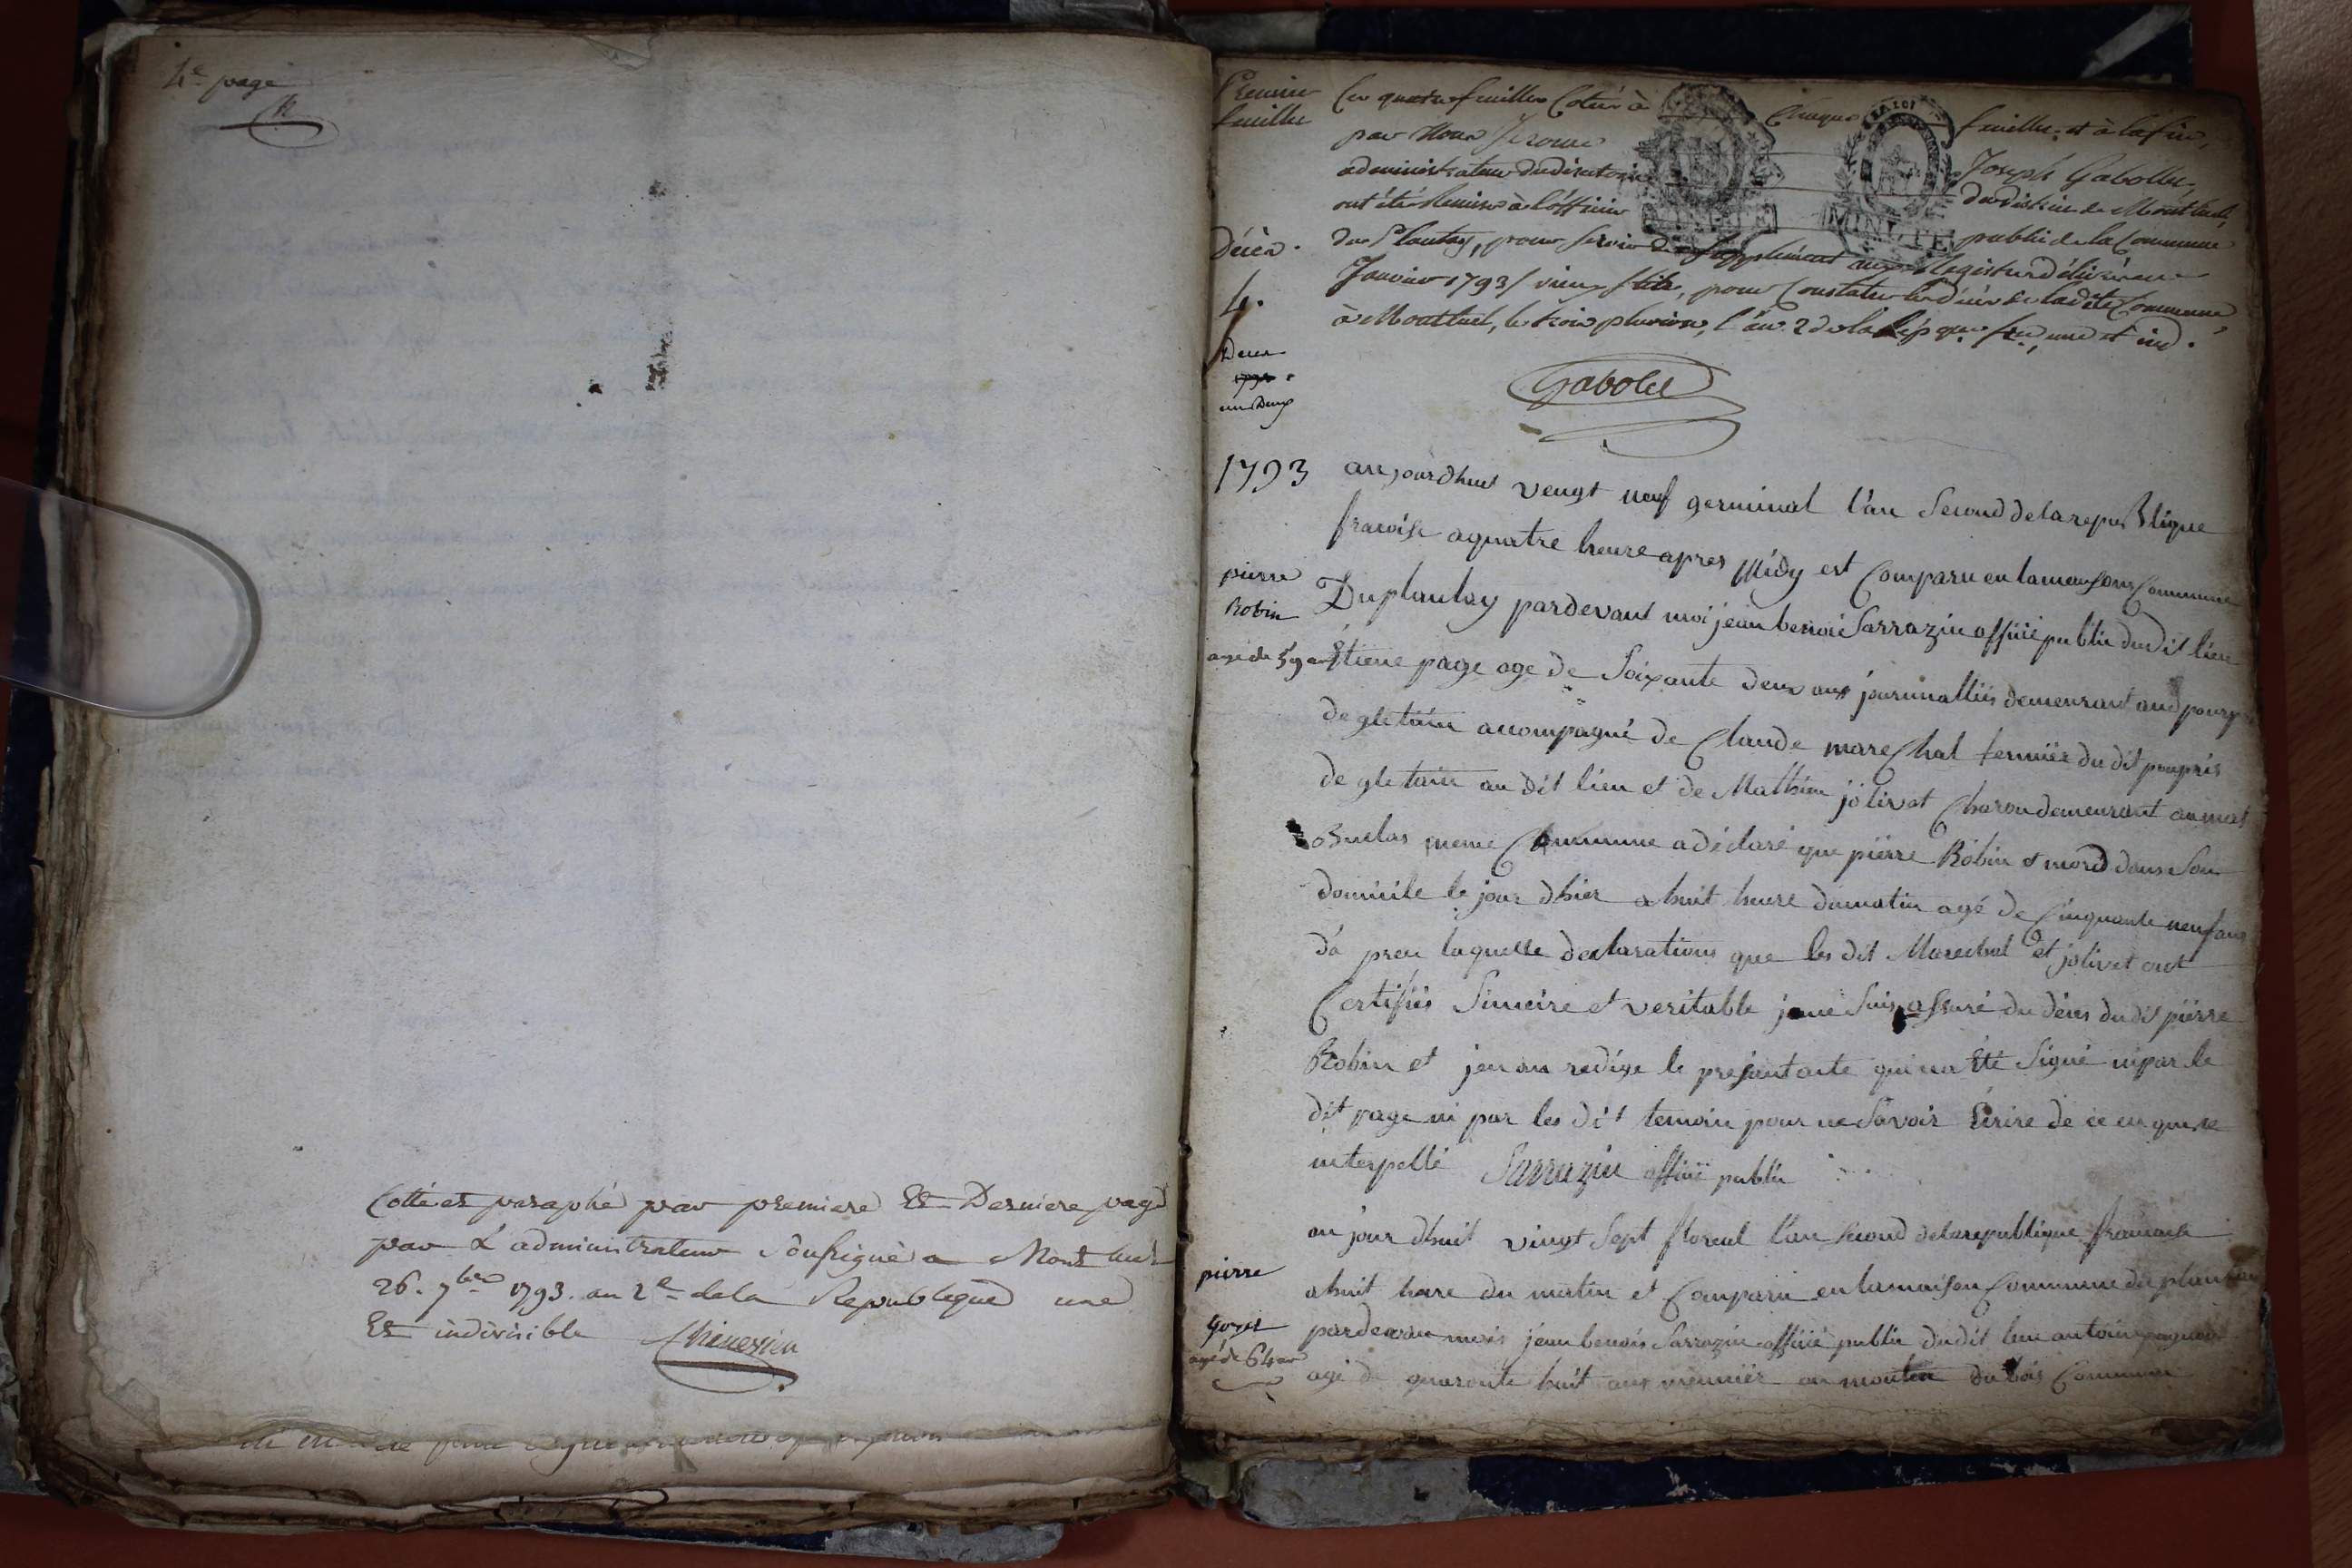 4e page
Cotté et paraphé par premiere Et Derniere page
par L'administrateur Sousigné a Montluel
26. 7bre 1793. an 2e dela Republique une
Et indivisible
Premier
feuillet
Ces quatre feuilles Cotées à Chaque feuille, et à la fin,
par Nous Jerome Joseph Gabollet,
administrateur du directoire du district de Montluel,
ont été Remises à l'officier public de la Commune
du Plantay, pour Servir de Supplément aux Registres délivrés en
Janvier 1793 / vieux stile, pour Constater les décès de ladite Commune,
à Montluel, le trois pluviose, l'an 2 de la Rép que frse, une et ind.
Décès.
4.
Deces
an Deux
Gabolet
1793
aujourdhuit vengt neuf germinal l'an Second de la republique
francoise a quatre heure apres Midy est Comparu en la maison Commune
Du plantay pardevant moi jean benoi Sarrazin officié public dudit lieu
pierre
Robin
agé de 59 ans
Etiene page age de Soixante deux ans demeurant au pourpris
de gletain accompagné de Claude mareChal fermiér du dit pourpris
de gletain au dit lieu et de Mathieu jolivet Charon demeurant au mas
meme Commune a déclaré que piérre Robin et mord dans Son
domicile le jour dhier a huit heure du matin agé de Cinquante neuf ans
d'a pres laquelle declarations que les dit Marechal et jolivet ont
Certifiés Sinceire et veritable je me suis assuré du déces du dit piérre
Robin et jen an redige le presant acte qui na Eté Signé ni par le
dit page ni par les dit temoin pour ne Savoir Ecrire de ce en quis
interpellé Sarrazin officié public
au jour dhuit vingt Sept floreal l'an Second de la republique francaise
a huit hure du matin et Comparu en la maison Commune du plantay
pierre
Goyet
agé de 64 an
pardevan mois jean benois Sarrazin officié public dudit lieu antoine
agé de quarante huit ans meuniér au moulin du bois Commune